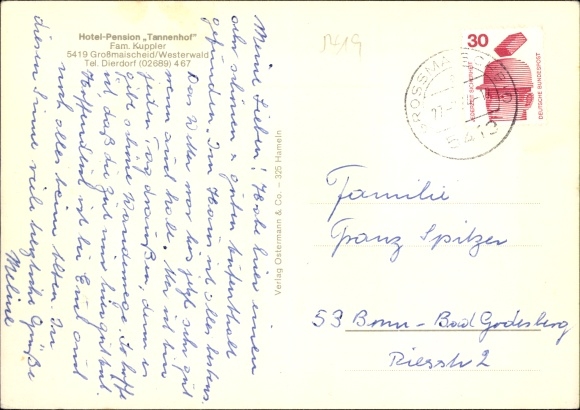 Hotel-Pension „Tannenhof"
Fam. Kuppler
5419 Großmaischeid/Westerwald
Tel. Dierdorf (02689) 467
5419
Meine Lieben! Habe hier einen
sehr schönen u. guten Aufenthalt
gefunden. Im Haus ist alles bestens.
Das Wetter war bis jetzt sehr gut
wenn auch kalt. Ich bin
jeden Tag draußen, denn es
gibt schöne Wanderwege. Ich hoffe
ist daß die Zeit mir hier gut tut.
Hoffentlich ist bei Euch auch
noch alles beim alten. In
diesem Sinne viele herzliche Grüße
Meline
Verlag Ostermann & Co. – 325 Hameln
30
JEDERZEIT SICHERHEIT
DEUTSCHE BUNDESPOST
GROSSMAISCHEID
5419
Familie
Franz Spitzer
53 Bonn - Bad Godesberg
Riesstr 2